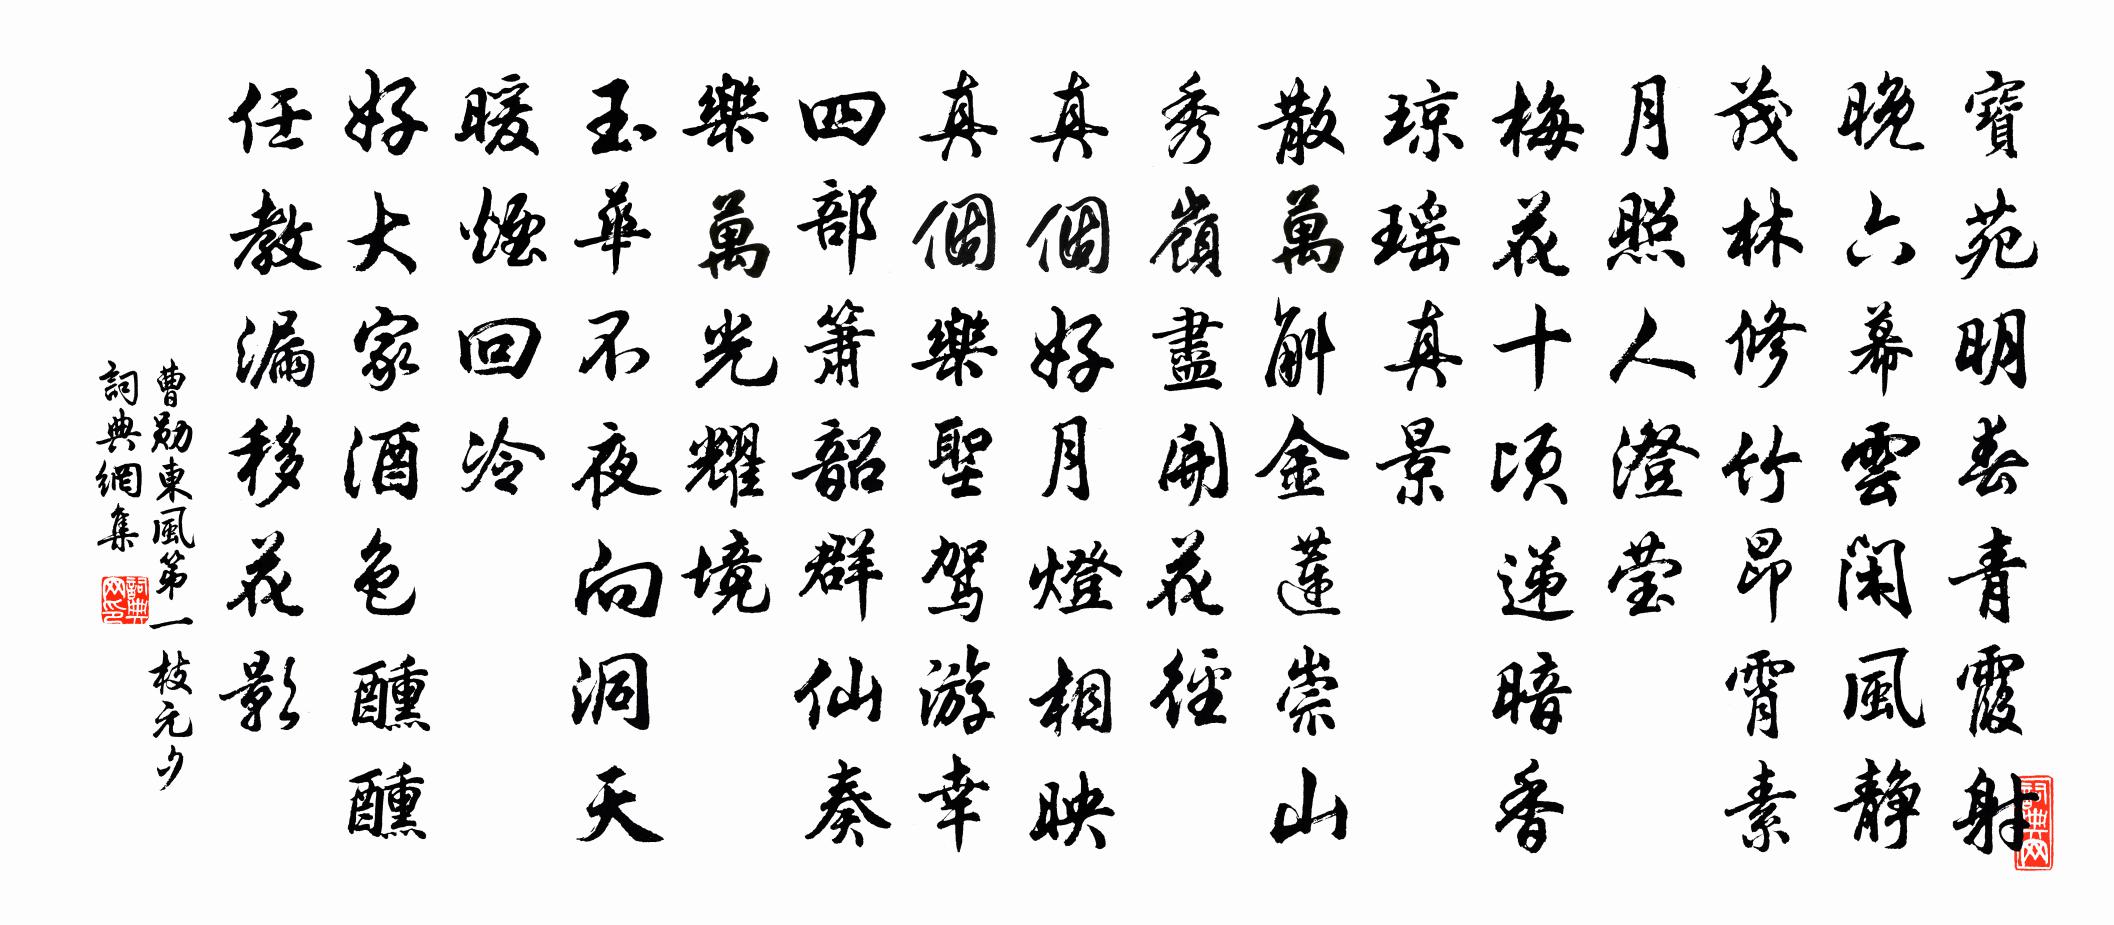 寶苑明春青霞射
晚六幕雲閑風靜
茂林修竹昂霄素
月照人澄莹
梅花十頃遞暗香
琼瑶真景
散萬斛金蓮崇山
秀嶺盡開花徑
真個好月燈相映
真個樂聖駕游幸
四部箫韶群仙奏
樂萬光耀境
玉華不夜向洞天
暖煙回冷
好大家酒色醺醺
任教漏移花影
曹勛東風第一枝元夕
詞典網集